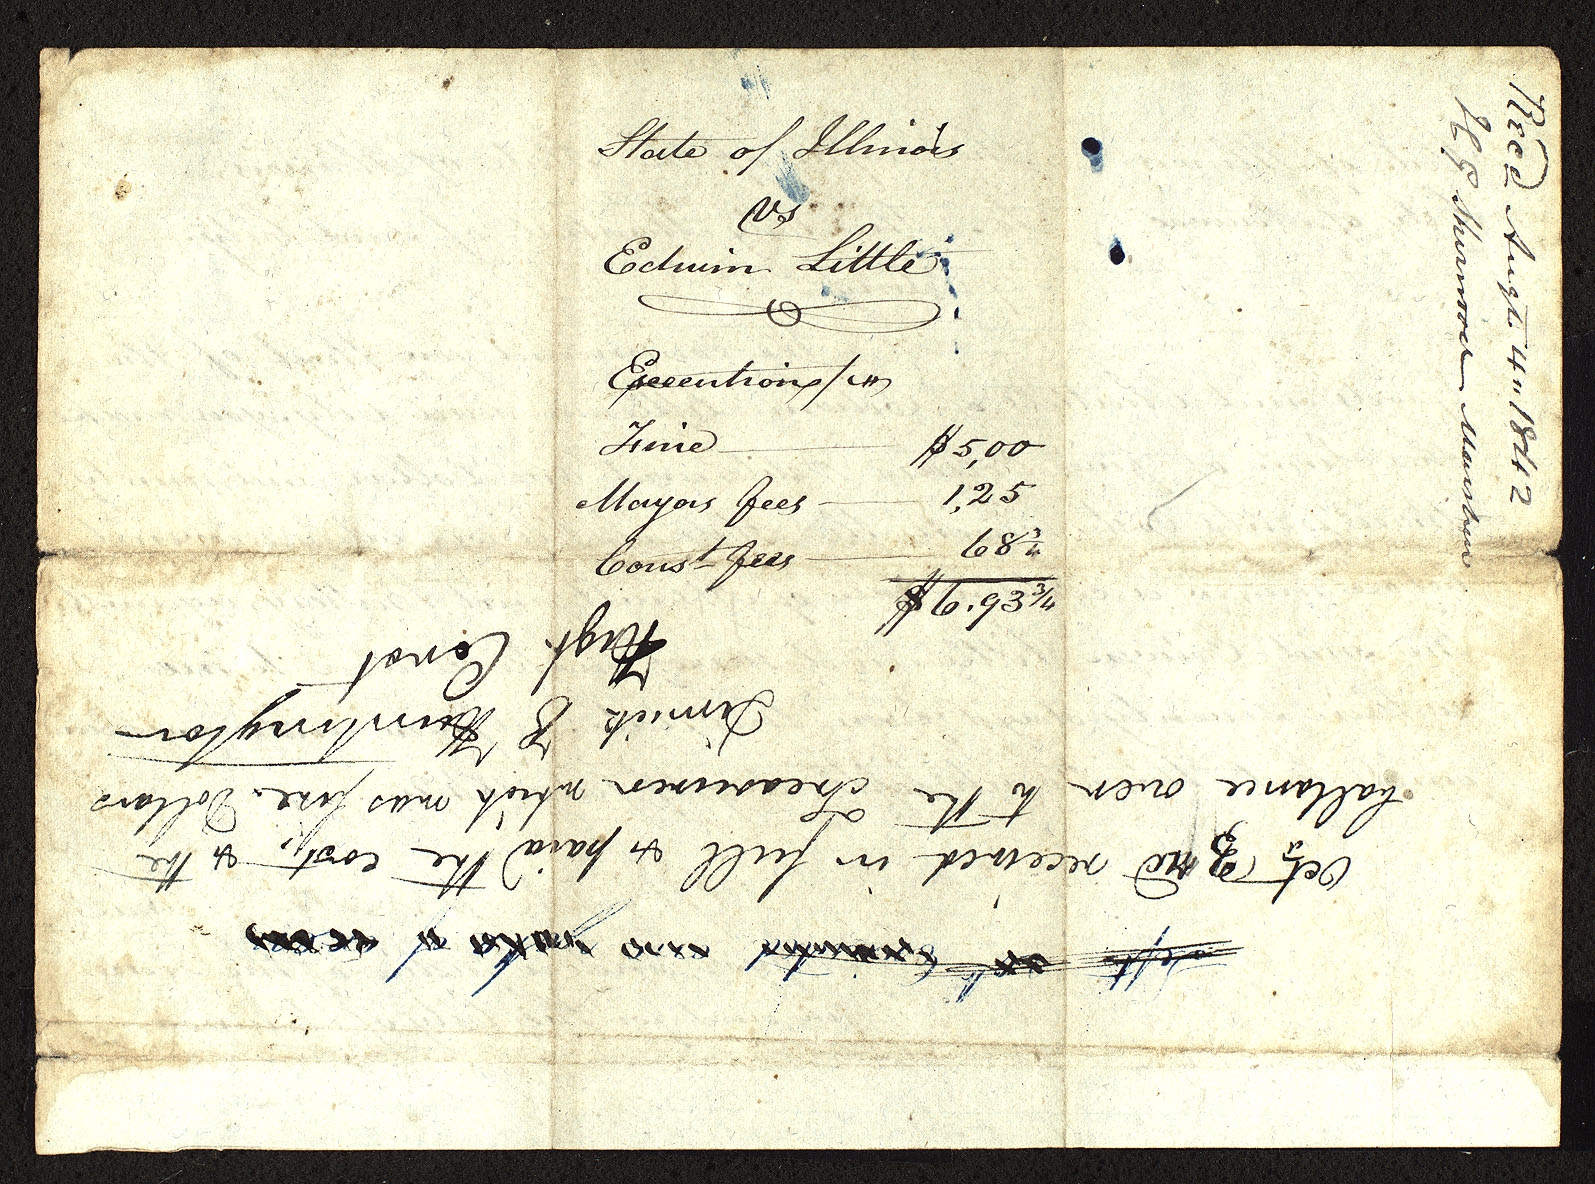 State of Illinois
vs
Edwin Little
Execution
Fine $5,00
Mayors fees 1,25
Const fees 68 3/4
$6.93 3/4
Recd Augt. 4" 1842
H G Sherwood Marshal
Oct 3 received in full & paid the cost, & the
ballance over to the Treasurer which was five Dollars
Dimick B Huntington
High Const